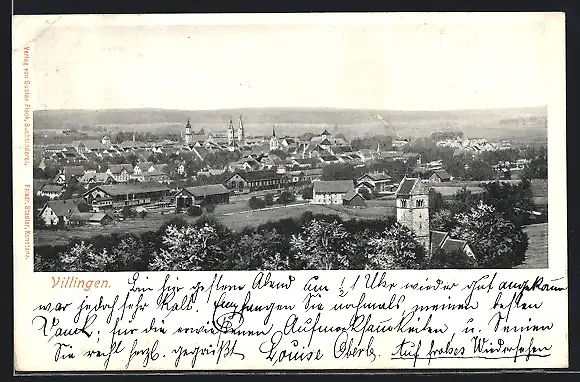 Villingen.
Verlag von Gustav Pleck, Buchbinderei.
Fernspr. Stadler, Konstanz.
Bin hier gestern Abend um ½ 1 Uhr wieder gut angekommen
war jedoch sehr kalt. Empfangen Sie nochmals meinen besten
Dank, für die erwiesenen Aufmerksamkeiten u. Seien
Sie recht herzl. gegrüßt Louise Oberle. Auf frohes Wiedersehen